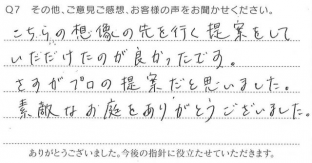 Q7 その他、ご意見ご感想、お客様の声をお聞かせください。
こちらの想像の先を行く提案をして
いただけたのが良かったです。
さすがプロの提案だと思いました。
素敵なお庭をありがとうございました。
ありがとうございました。今後の指針に役立たせていただきます。